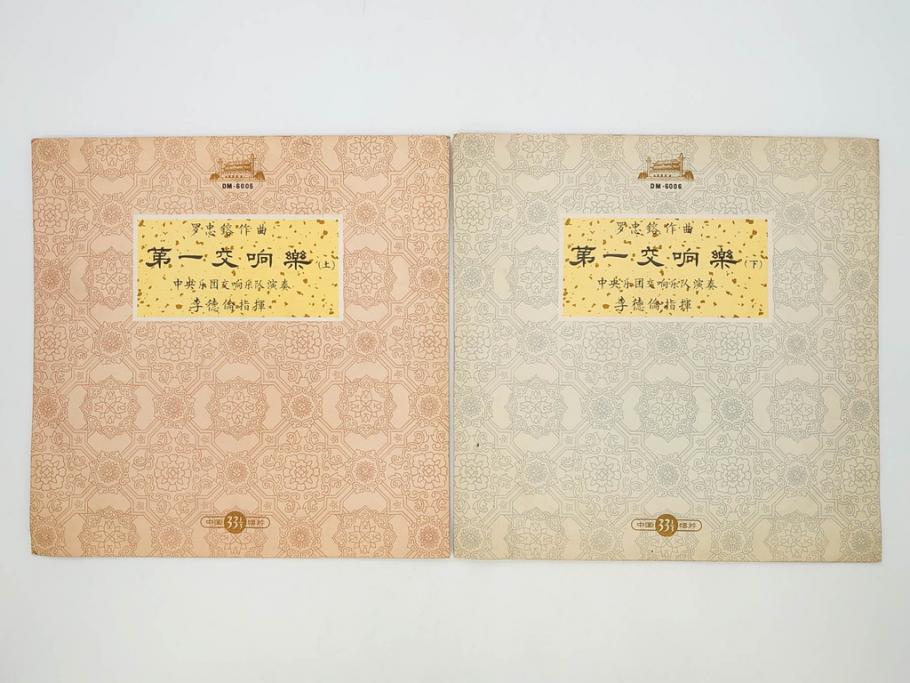 DM-6005
罗忠鎔作曲
第一交响樂(上)
中央乐团交响乐队演奏
李德倫指揮
中国 33⅓ 唱片
DM-6006
罗忠鎔作曲
第一交响樂(下)
中央乐团交响乐队演奏
李德倫指揮
中国 33⅓ 唱片